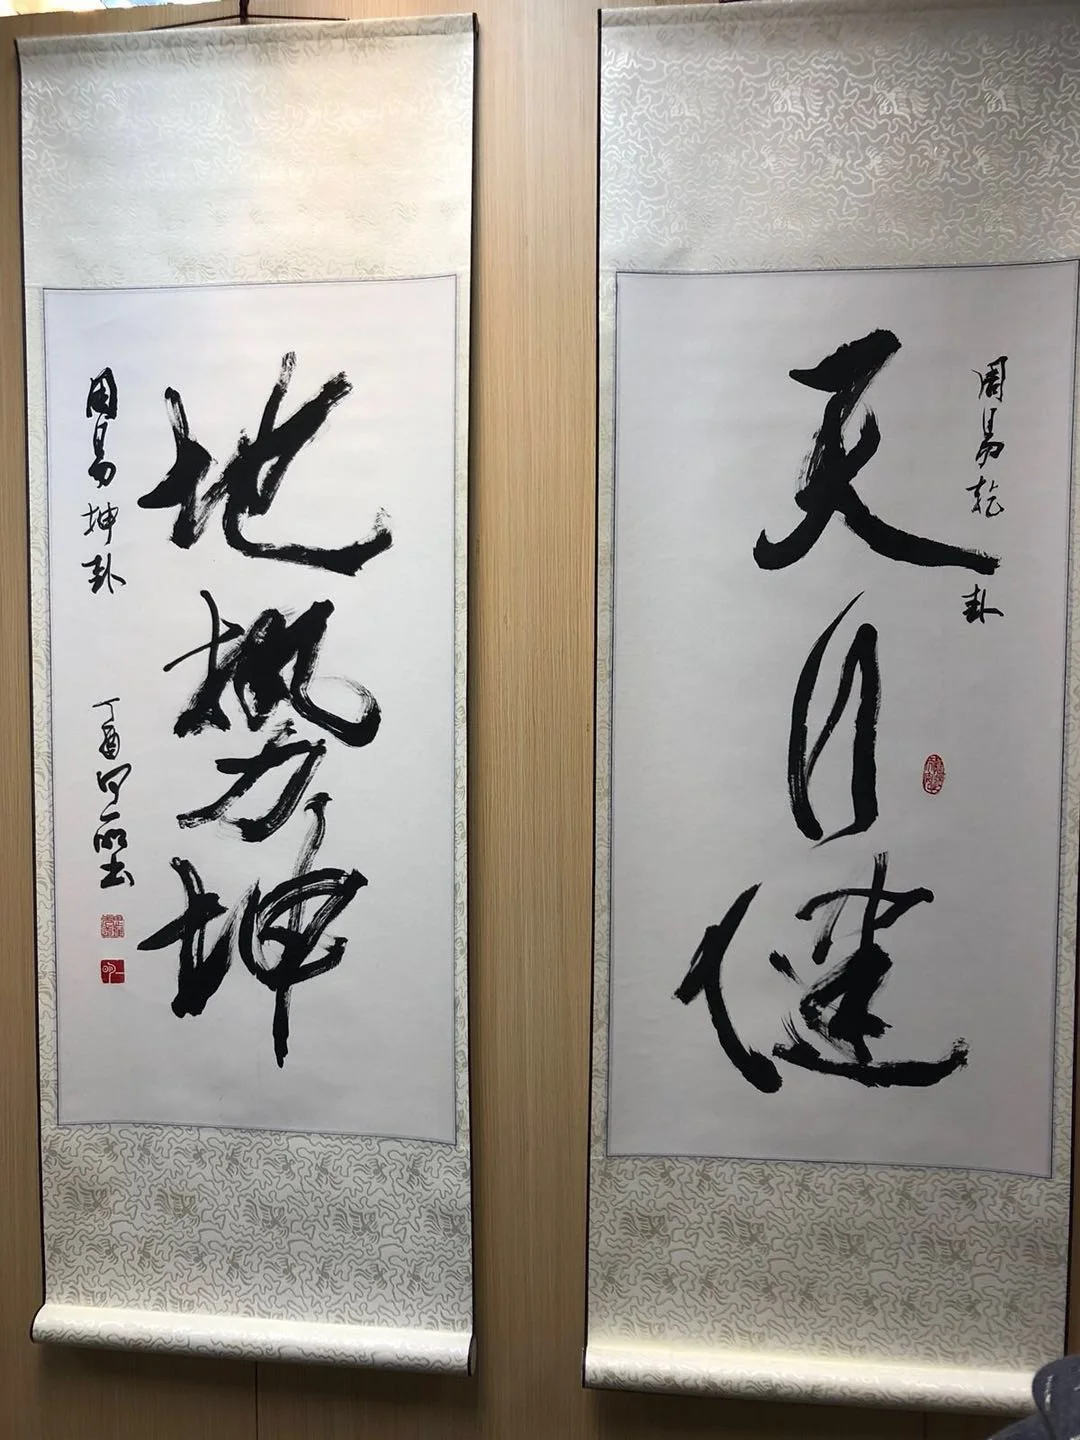 周易乾卦
天行健
地勢坤
周易坤卦
丁酉